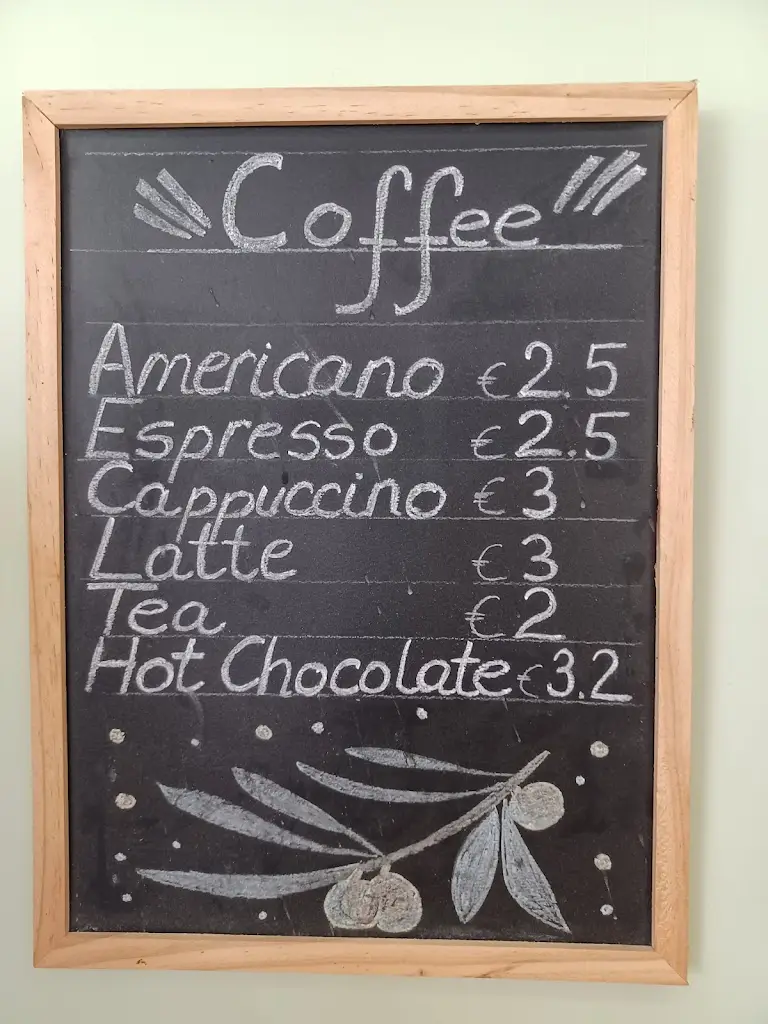 Coffee
Americano €2.5
Espresso €2.5
Cappuccino €3
Latte €3
Tea €2
Hot Chocolate €3.2